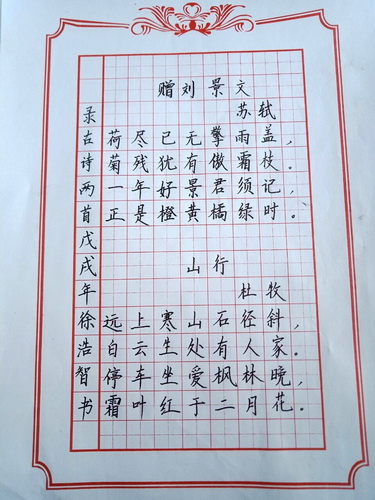 赠刘景文
苏轼
荷尽已无擎雨盖，
菊残犹有傲霜枝。
一年好景君须记，
正是橙黄橘绿时。
山行
杜牧
远上寒山石径斜，
白云生处有人家。
停车坐爱枫林晚，
霜叶红于二月花。
录古诗两首戊戌年徐浩智书